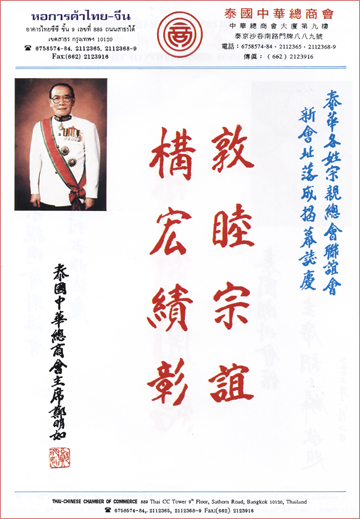 หอการค้าไทย-จีน
อาคารไทยซีซี ชั้น 9 เลขที่ 889 ถนนสาธรใต้
เขตสาธร กรุงเทพฯ 10120
☎ 6758574-84, 2112365, 2112368-9
Fax:(662) 2123916
泰國中華總商會
中華總商會大廈第九樓
泰京沙吞南路門牌八八九號
電話：6758574-84，2112365，2112368-9
傳真：(662) 2123916
泰華各姓宗親總會聯誼會
新會址落成揭幕誌慶
敦睦宗誼
構宏績彰
泰國中華總商會主席鄭明如
THAI-CHINESE CHAMBER OF COMMERCE 889 Thai CC Tower 9th Floor, Sathorn Road, Bangkok 10120, Thailand
☎ 6758574-84, 2112365, 2112368-9 Fax:(662) 2123916